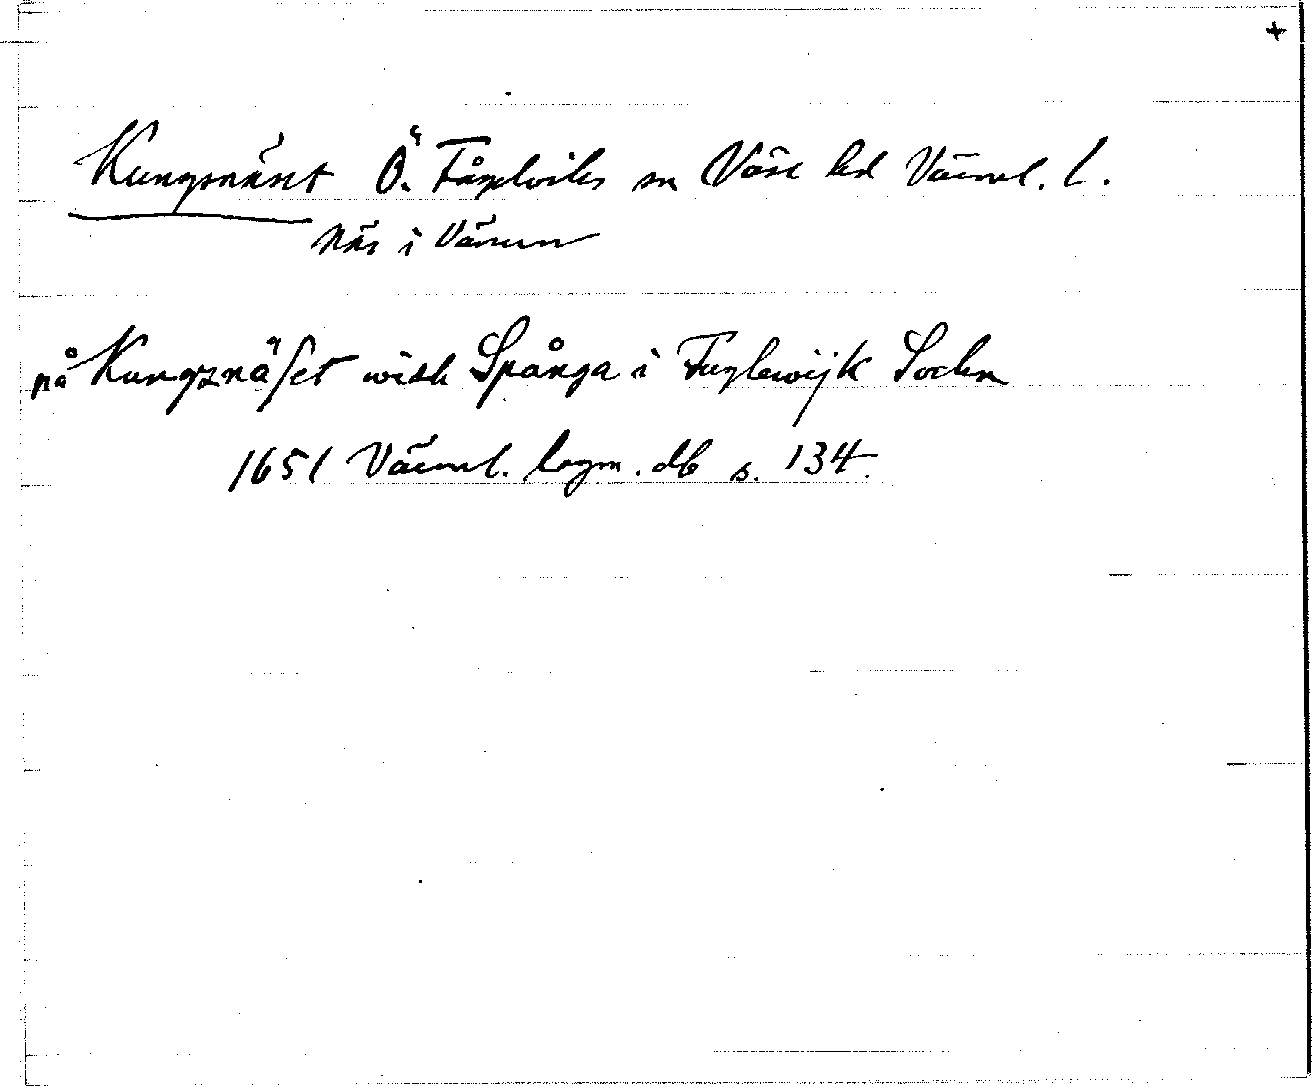 +
Kungsnäset Ö. Fågelviks sn Väse hd Värml. l.
Näs i Vänern
på Kungznäset widh Spånga i Fuglewijk Sochn
1651 Värml. lagm. db s. 134.